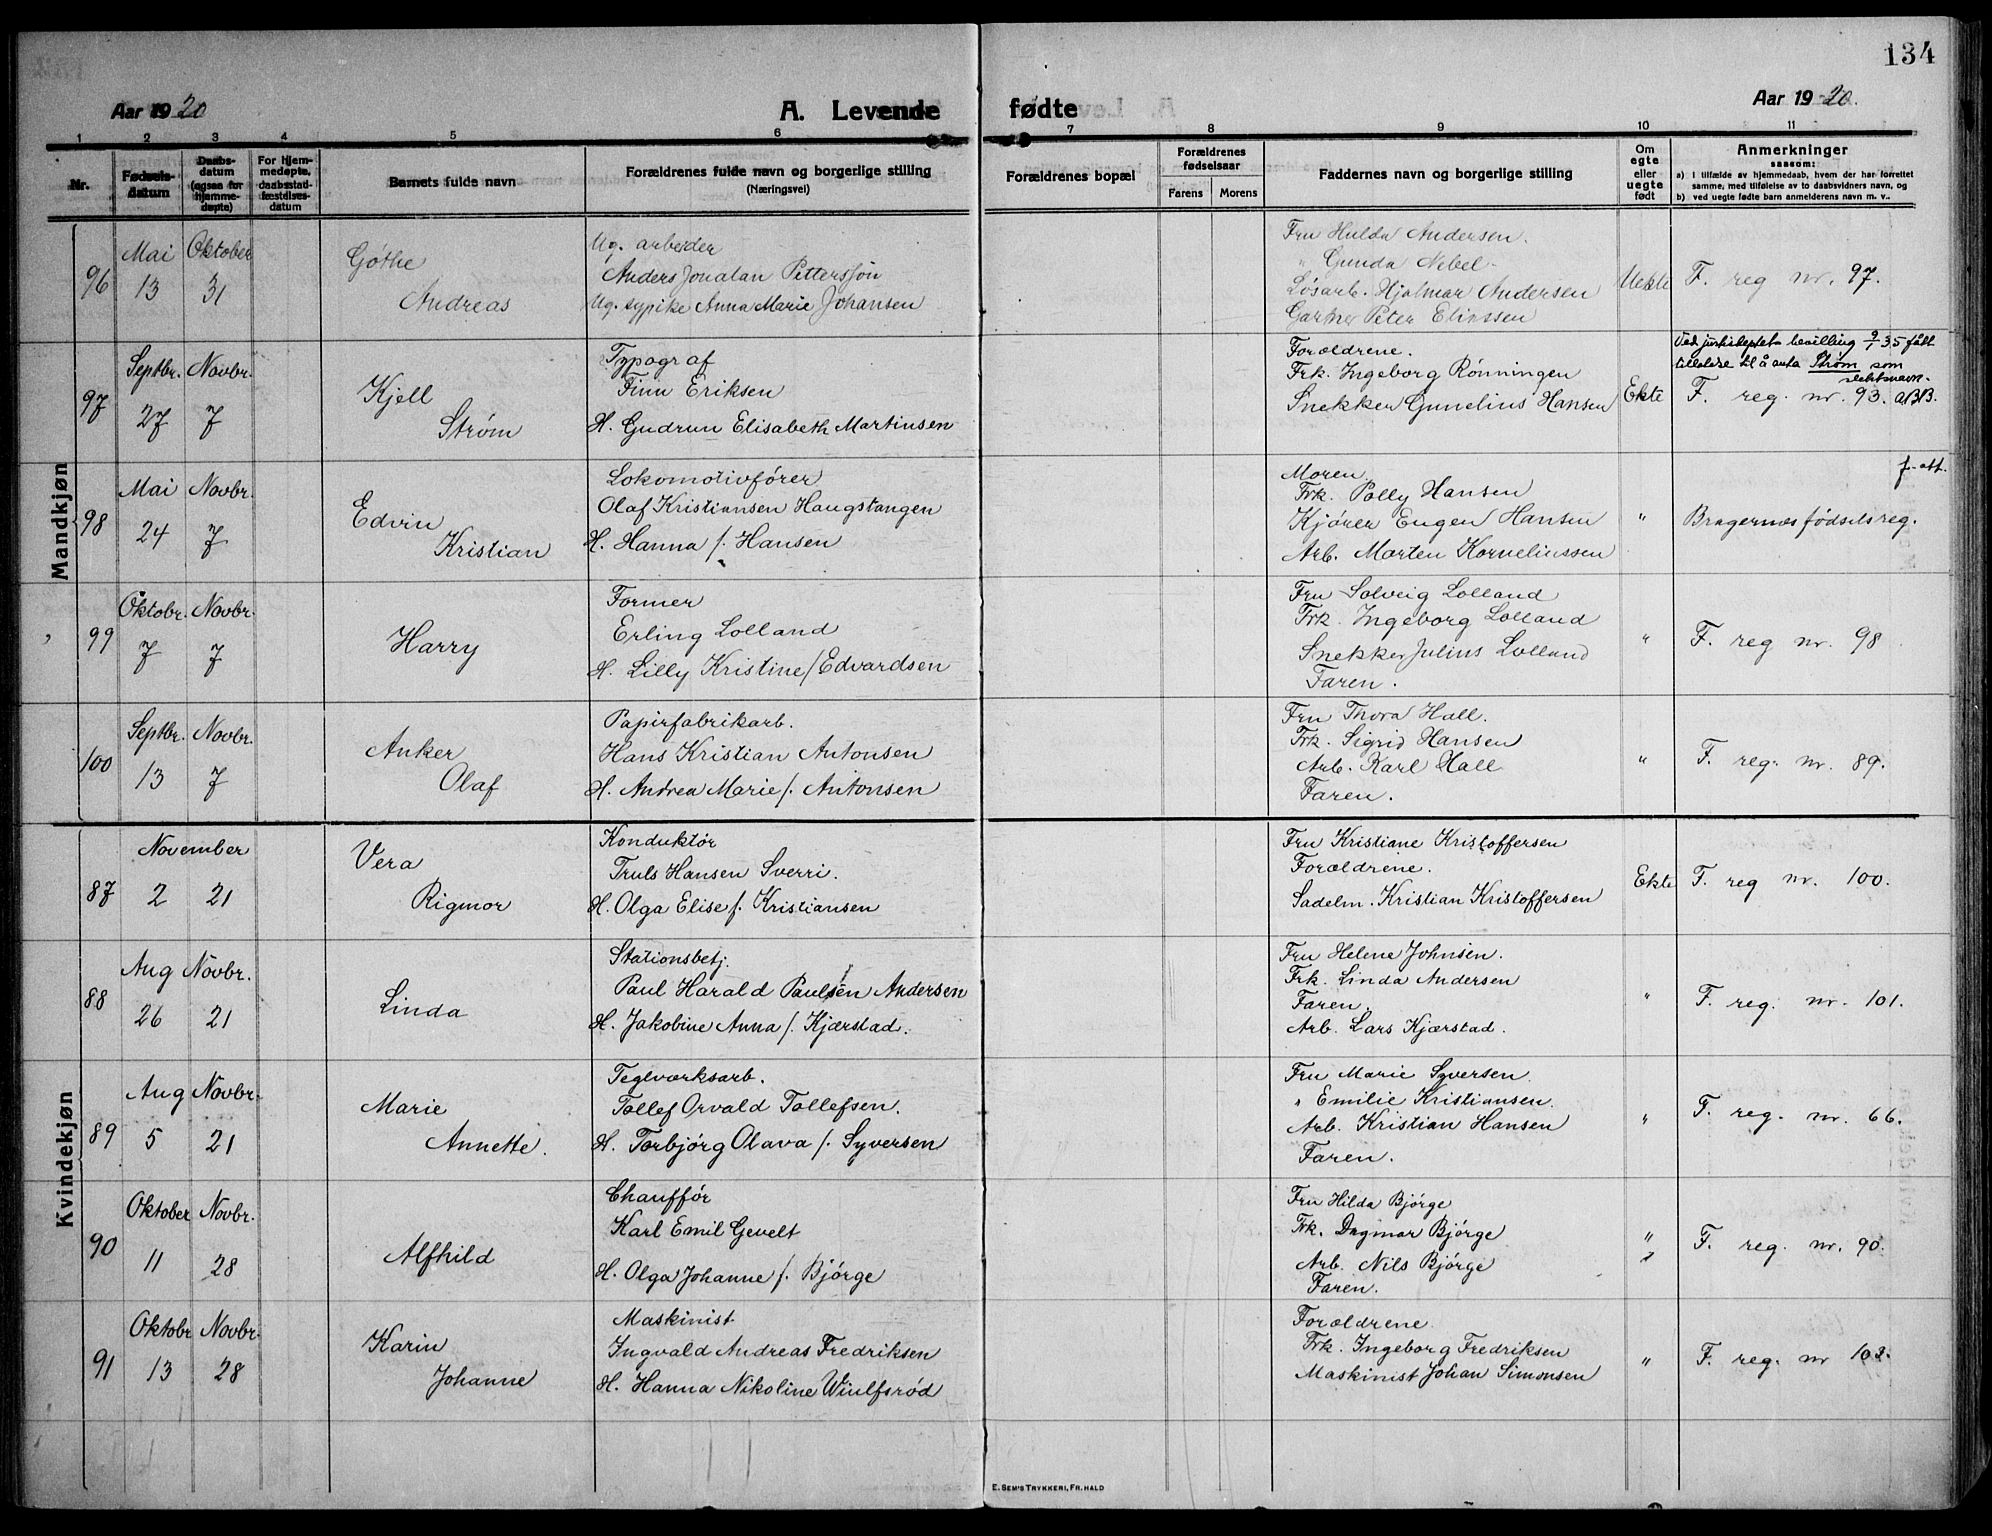 134
Aar 1920
A. Levende fødte
Aar 1920.
1 2 3 4 5 6 7 8 9 10 11
Nr.
Fødsels-
datum
Daabs-
datum
(ogsaa for
hjemme-
døpte)
For hjem-
medøpte,
daabsstad-
fæstelses-
datum
Barnets fulde navn
Forældrenes fulde navn og borgerlige stilling
(Næringsvei)
Forældrenes bopæl
Forældrenes
fødselsaar
Farens Morens
Faddernes navn og borgerlige stilling
Om
egte
eller
uegte
født
Anmerkninger
saasom:
a) i tilfælde av hjemmedaab, hvem der har forrettet
samme, med tilføielse av to daabsvidners navn, og
b) ved uegte fødte barn anmelderens navn m. v..
Mandkjøn
96
Mai
13
Oktober
31
Gøthe
Andreas
Ug. arbeider
Anders Jonatan Pettersson
Ug. sypike Anna Marie Johansen
Fru Hulda Andersen.
" Gunda Nebel.
Løsarb. Hjalmar Andersen
Gartner Peter Eliassen
Uekte
F. reg nr. 97.
97
Septbr.
27
Novbr.
7
Kjell
Strøm
Typograf
Finn Eriksen
H. Gudrun Elisabeth Martinsen
Forældrene.
Frk. Ingeborg Rønningen
Snekker Gunelius Hansen
Ekte
Ved justisdeptets bevilling 9/1 35 fått
tillatelse til å anta Strøm som
slektsnavn.
F. reg. nr. 93.
98
Mai
24
Novbr.
7
Edvin
Kristian
Lokomotivfører
Olaf Kristiansen Haugstangen
H. Hanna f. Hansen
Moren
Frk. Polly Hansen
Kjører Eugen Hansen
Arb. Morten Korneliussen
"
f. att.
Bragernes fødselsreg.
99
Oktobr.
7
Novbr.
7
Harry
Former
Erling Lolland
H. Lilly Kristine f. Edvardsen
Fru Solveig Lolland
Frk. Ingeborg Lolland
Snekker Julius Lolland
Faren.
"
F. reg nr. 98
100
Septbr.
13
Novbr.
7
Anker
Olaf
Papirfabrikarb.
Hans Kristian Antonsen
H. Andrea Marie f. Antonsen
Fru Thora Hall.
Frk. Sigrid Hansen
Arb. Karl Hall
Faren.
"
F. reg. nr. 89.
Kvindekjøn
87
November
2
21
Vera
Rigmor
Konduktør
Truls Hansen Sverri.
H. Olga Elise f. Kristiansen
Fru Kristiane Kristoffersen
Forældrene.
Sadelm. Kristian Kristoffersen
Ekte
F. reg nr. 100.
88
Aug
26
Novbr.
21
Linda
Stationsbetj.
Paul Harald Paulsen Andersen
H. Jakobine Anna f. Kjærstad.
Fru Helene Johnsen.
Frk. Linda Andersen
Faren.
Arb. Lars Kjærstad.
"
F. reg. nr. 101.
89
Aug
5
Novbr.
21
Marie
Annette.
Teglværksarb.
Tollef Orvald Tollefsen.
H. Torbjørg Olava f. Syversen
Fru Marie Syversen
" Emilie Kristiansen.
Arb. Kristian Hansen
Faren.
"
F. reg. nr. 66.
90
Oktober
11
Novbr.
28
Alfhild
Chauffør
Karl Emil Gevelt
H. Olga Johanne f. Bjørge
Fru Hilda Bjørge
Frk. Dagmar Bjørge
Arb. Nils Bjørge
Faren.
"
F. reg. nr. 90.
91
Oktobr
13
Novbr.
28
Karin
Johanne
Maskinist
Ingvald Andreas Fredriksen
H. Hanna Nikoline Wiulfsrød
Forældrene
Frk. Ingeborg Fredriksen
Maskinist Johan Simonsen
"
F. reg. nr 103.
E. SEM'S TRYKKERI, FR. HALD